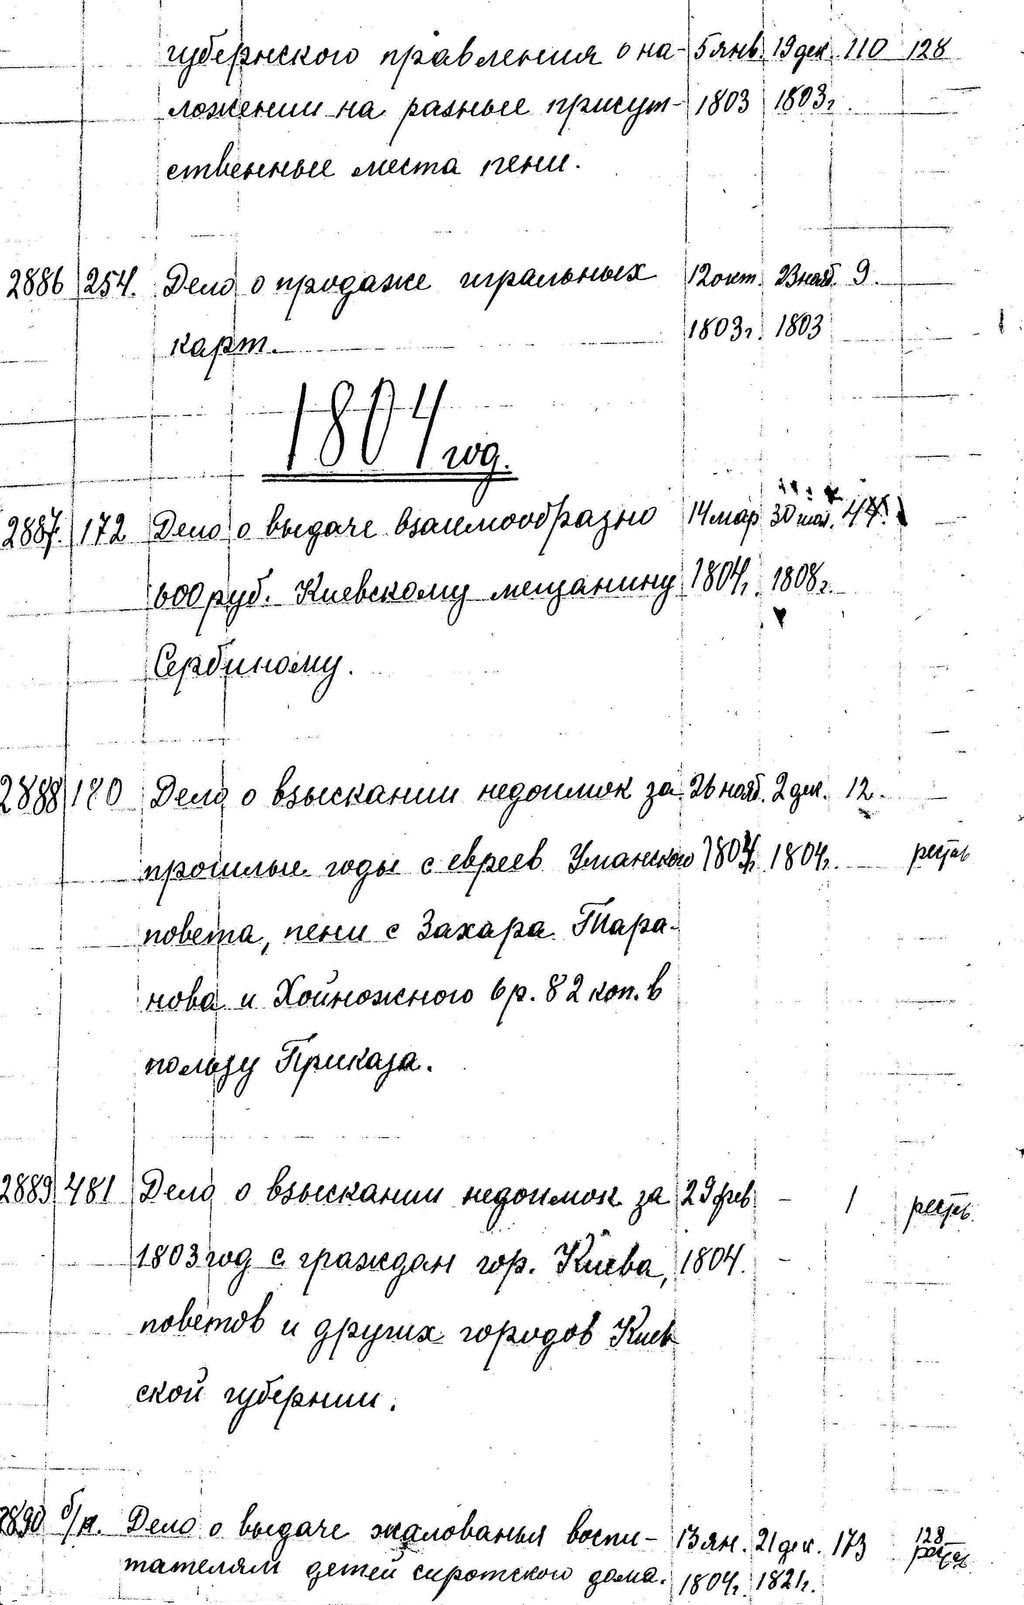 губернского правления о на- 5 янв. 19 дек. 110 128
ложении на разные присут- 1803 1803г.
ственные места пени.
2886 254. Дело о продаже игральных 12 окт. 23 нояб. 9.
карт. 1803г. 1803
1804 год.
2887. 172 Дело о выдаче взаимообразно 14 мар 30 44.
600 руб. Киевскому мещанину 1804г. 1808г.
Сербиному.
2888 180 Дело о взыскании недоимок за 26 нояб. 2 дек. 12.
прошлые годы с евреев Уманского 1804г. 1804г.
повета, пени с Захара Тара-
нова и Хойножного 6 р. 82 коп. в
пользу Приказа.
2889 481 Дело о взыскании недоимок за 29 фев - 1
1803 год с граждан гор. Киева, 1804. -
поветов и других городов Киев
ской губернии.
2890 б/н. Дело о выдаче жалованья воспи- 13 ян. 21 дек. 173 128
тателям детей сиротского дома. 1804г. 1821г.